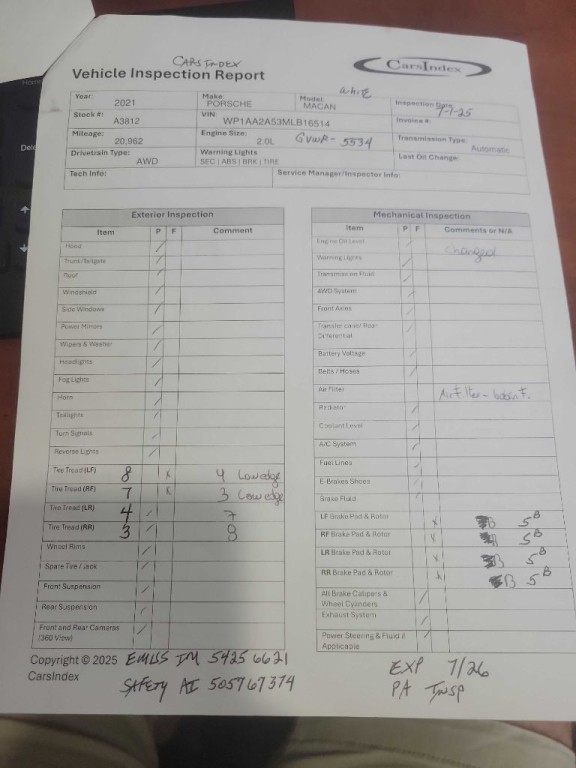 CARSINDEX
Vehicle Inspection Report
CarsIndex
White
Year: 2021 Make: PORSCHE Model: MACAN Inspection Date 7-7-25
Stock #: A3812 VIN: WP1AA2A53MLB16514 Invoice #:
Mileage: 20,962 Engine Size: 2.0L GVWR- 5534 Transmission Type: Automatic
Drivetrain Type: AWD Warning Lights SEC | ABS | BRK | TIRE Last Oil Change:
Tech Info: Service Manager/Inspector Info:
Exterior Inspection
Item P F Comment
Hood
Trunk/Tailgate
Roof
Windshield
Side Windows
Power Mirrors
Wipers & Washer
Headlights
Fog Lights
Horn
Taillights
Turn Signals
Reverse Lights
Tire Tread (LF) 8 x 4 Low edge
Tire Tread (RF) 7 x 3 Low edge
Tire Tread (LR) 4 7
Tire Tread (RR) 3 8
Wheel Rims
Spare Tire / Jack
Front Suspension
Rear Suspension
Front and Rear Cameras
(360 View)
Mechanical Inspection
Item P F Comments or N/A
Engine Oil Level Changed
Warning Lights
Transmission Fluid
AWD System
Front Axles
Transfer case/ Rear
Differential
Battery Voltage
Belts / Hoses
Air Filter Air Filter-
Radiator
Coolant Level
A/C System
Fuel Lines
E-Brakes Shoes
Brake Fluid
LF Brake Pad & Rotor x B 5 B
RF Brake Pad & Rotor x 5 B
LR Brake Pad & Rotor x B 5 B
RR Brake Pad & Rotor x B 5 B
All Brake Calipers &
Wheel Cylinders
Exhaust System
Power Steering & Fluid if
Applicable
Copyright © 2025
CarsIndex
EMISS IM 5425 6621
SAFETY AI 505767374
EXP 7/26
PA INSP